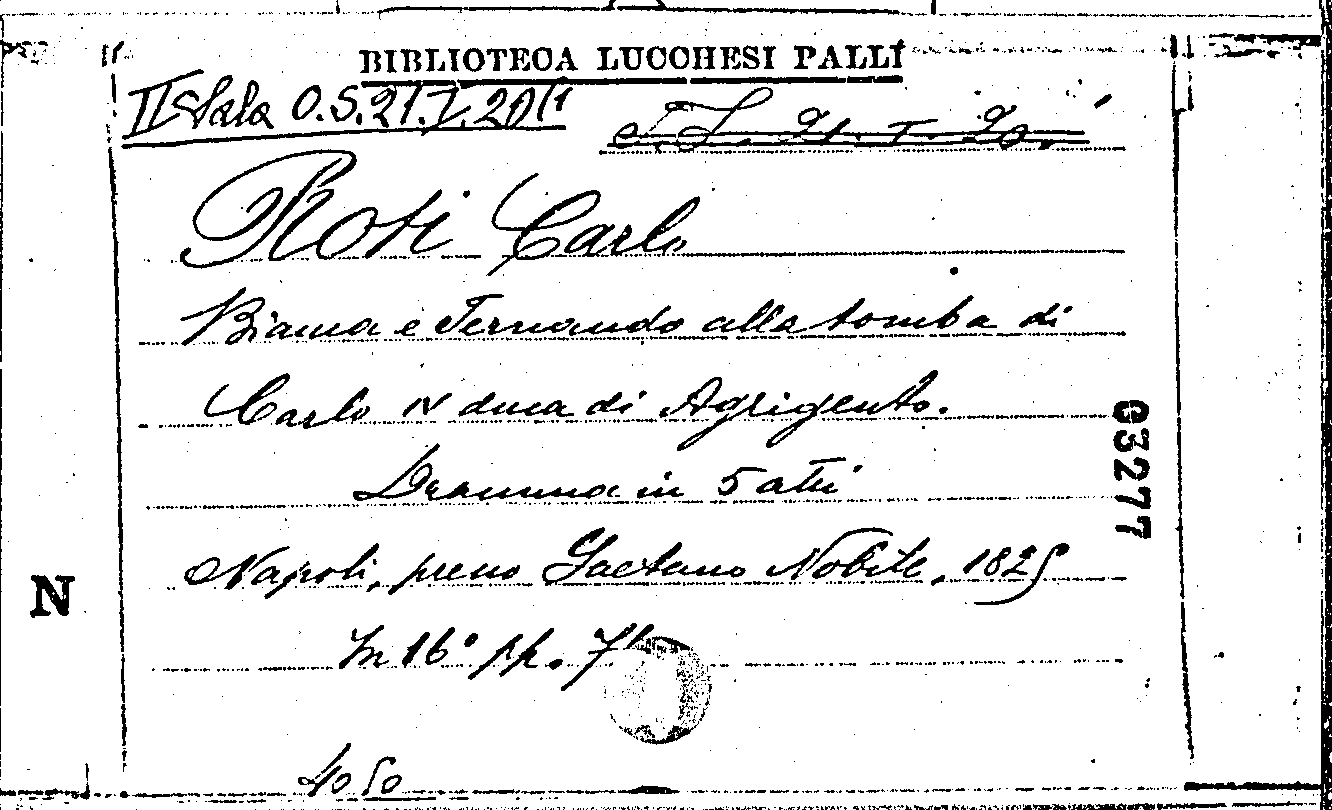 BIBLIOTECA LUCCHESI PALLI
II Sala O.S.21.I.20/1
Roti Carlo
Bianca e Fernando alla tomba di
Carlo IV duca di Agrigento.
Dramma in 5 atti
Napoli, presso Gaetano Nobile, 1825
In 16° pp.
03277
N
4050